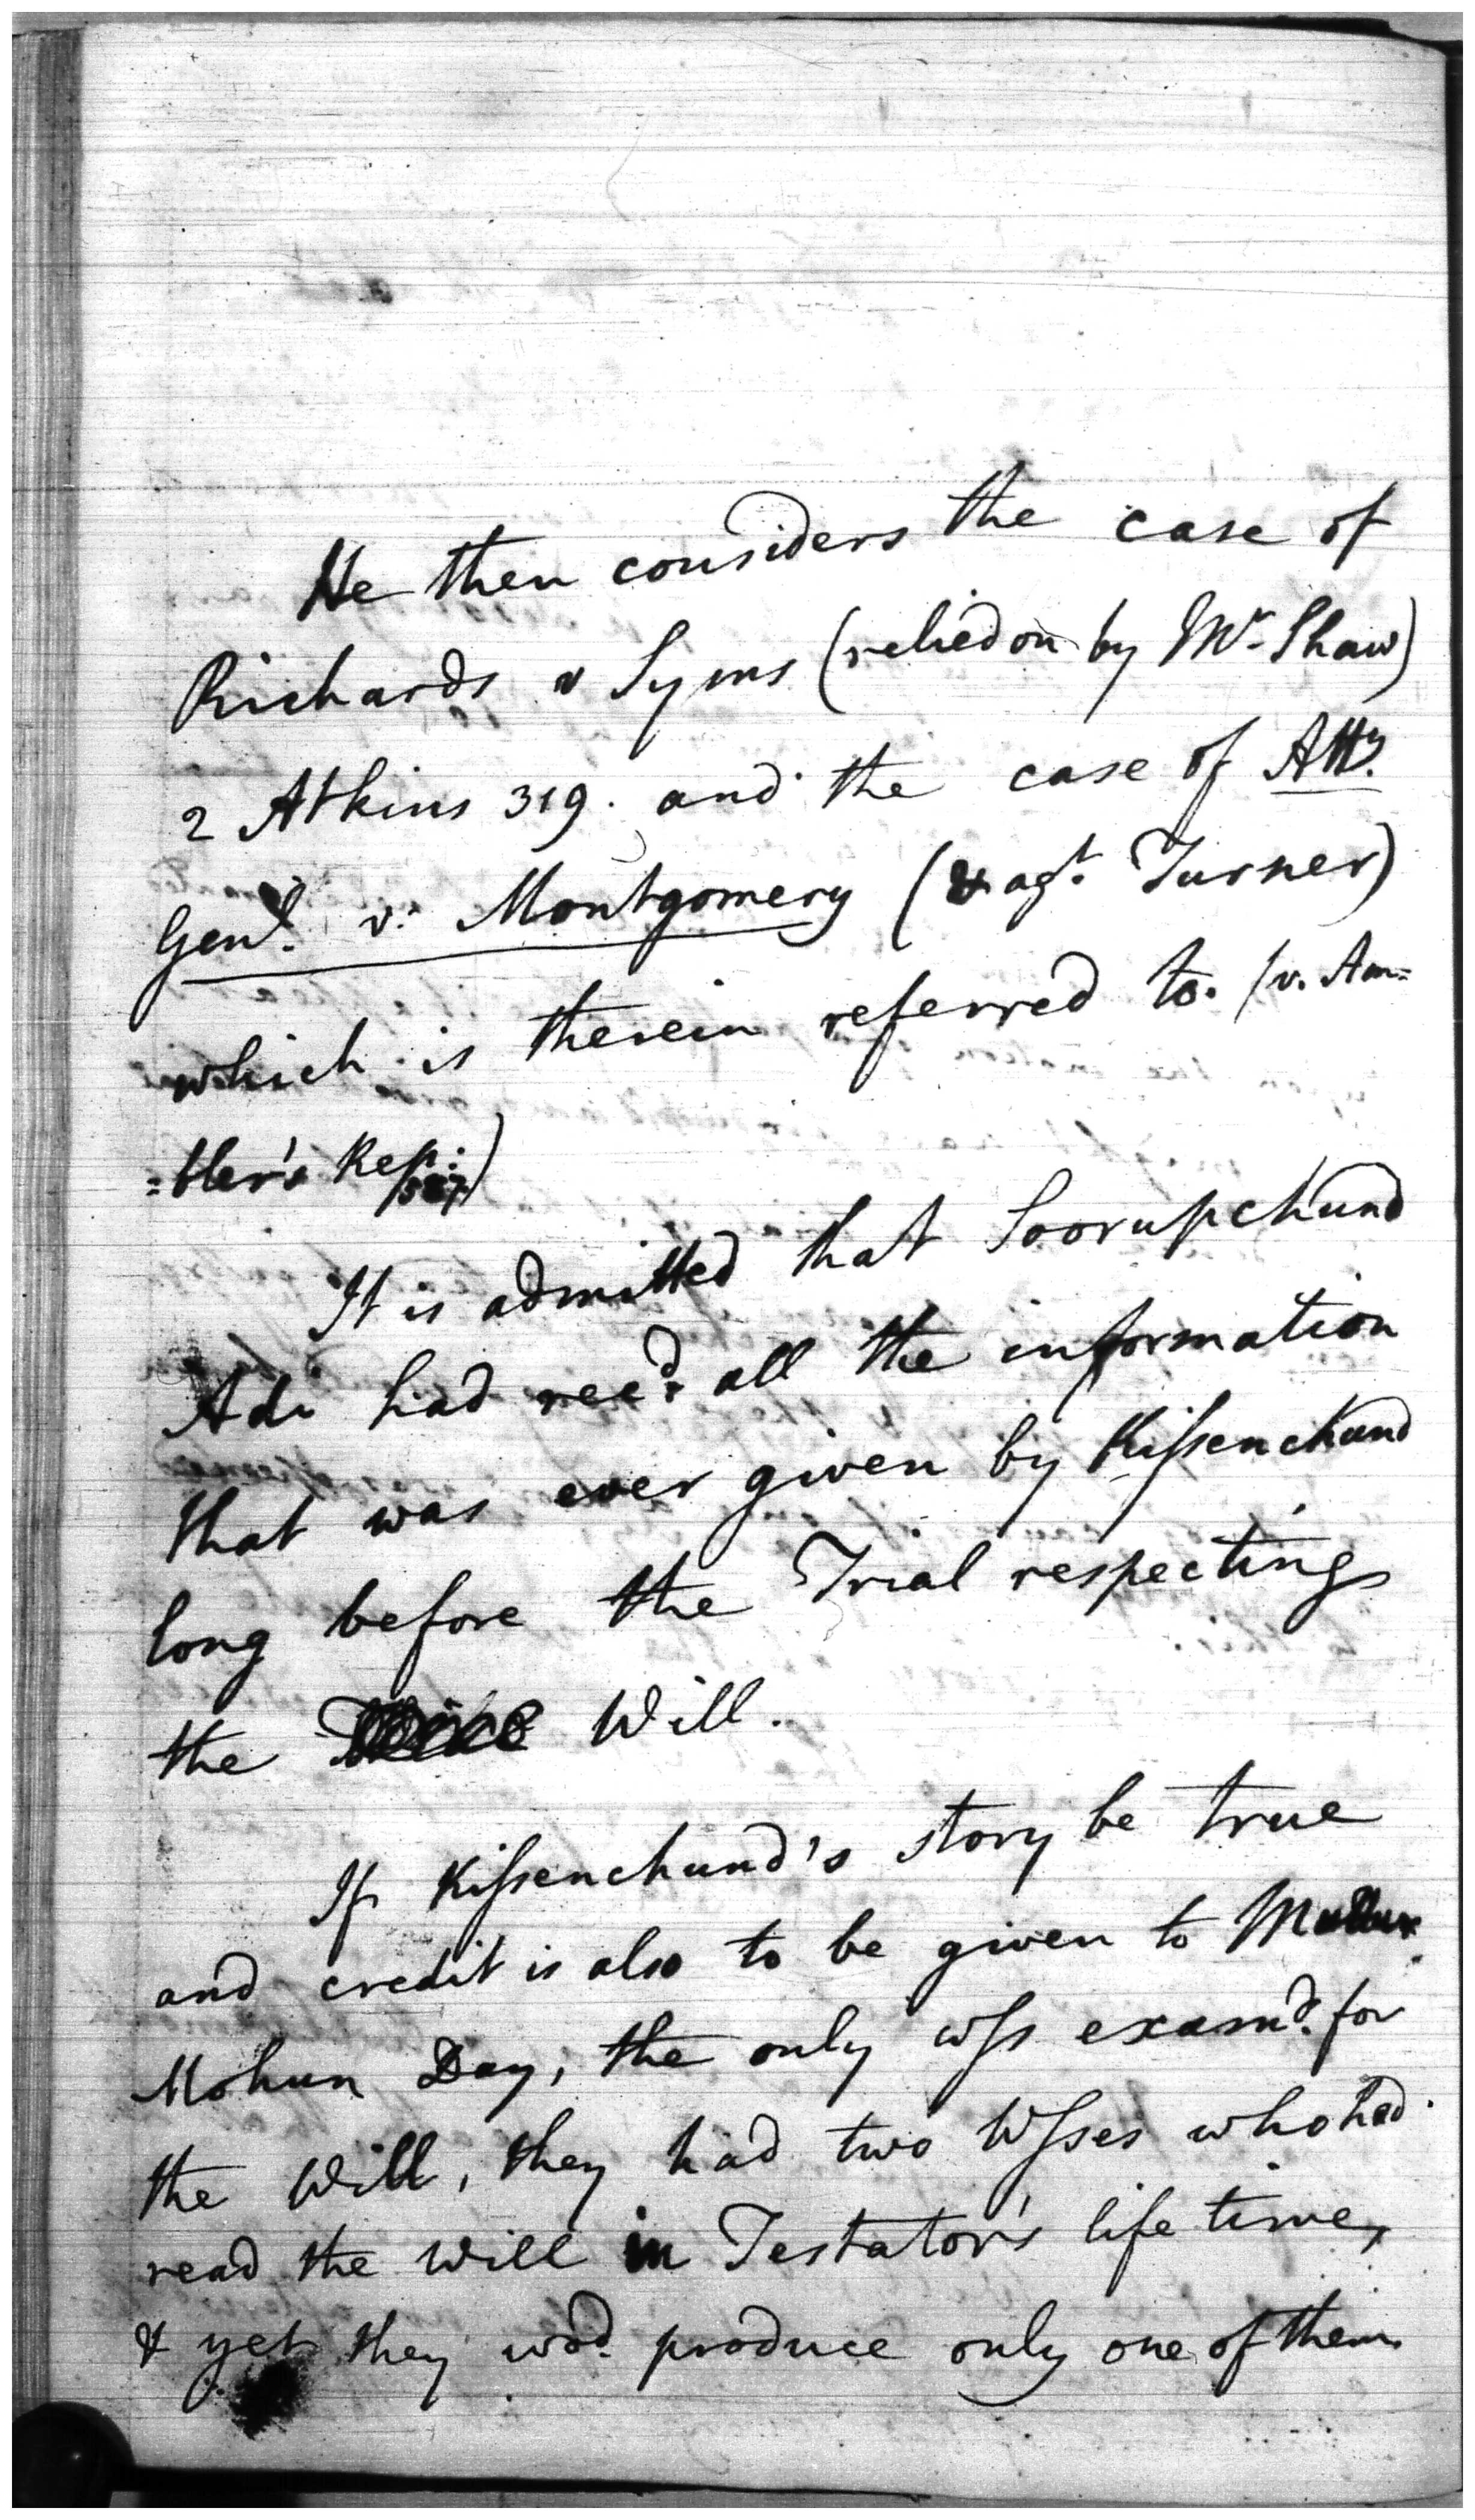 He then considers the case of
Richards v Syms (relied on by Mr. Shaw)
2 Atkins 319. and the case of Atty.
Genl. v. Montgomery (& agt. Turner)
which is therein referred to. (v. Am=
=bler's Rep:)
It is admitted that Soorupchund
Adi had recd. all the information
that was ever given by Kissenchund
long before the Trial respecting
the Will.
If Kissenchund's story be true
and credit is also to be given to
Mohun Day, the only wss examd. for
the Will, they had two Wsses who had
read the Will in Testator's life time,
& yet they wod. produce only one of them.